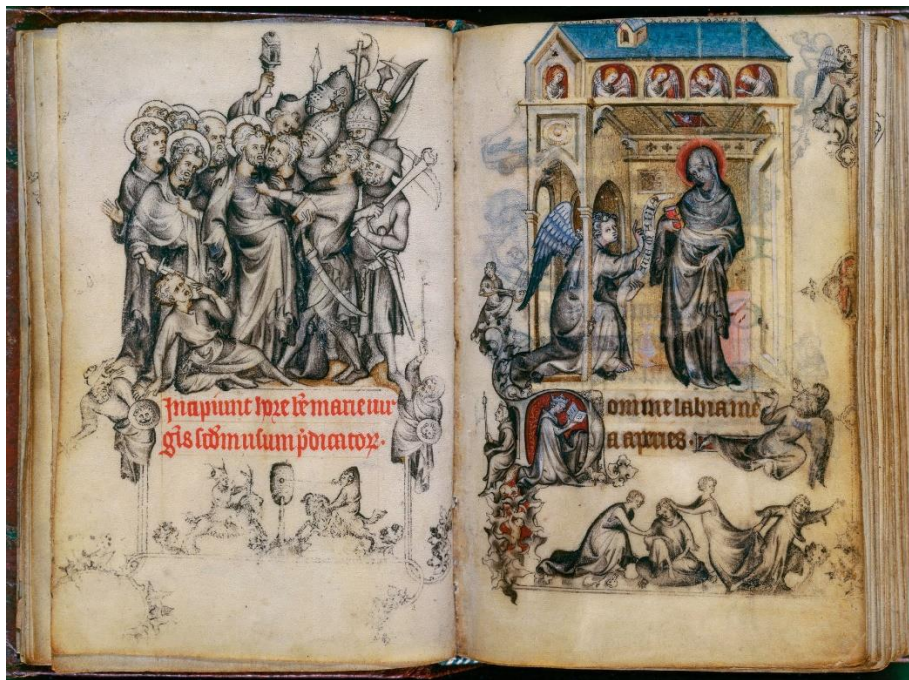 Incipiunt hore b̄e marie uir
gīs scd̄m usum p̄dicatoꝝ.
Domine labia mē
a aperies